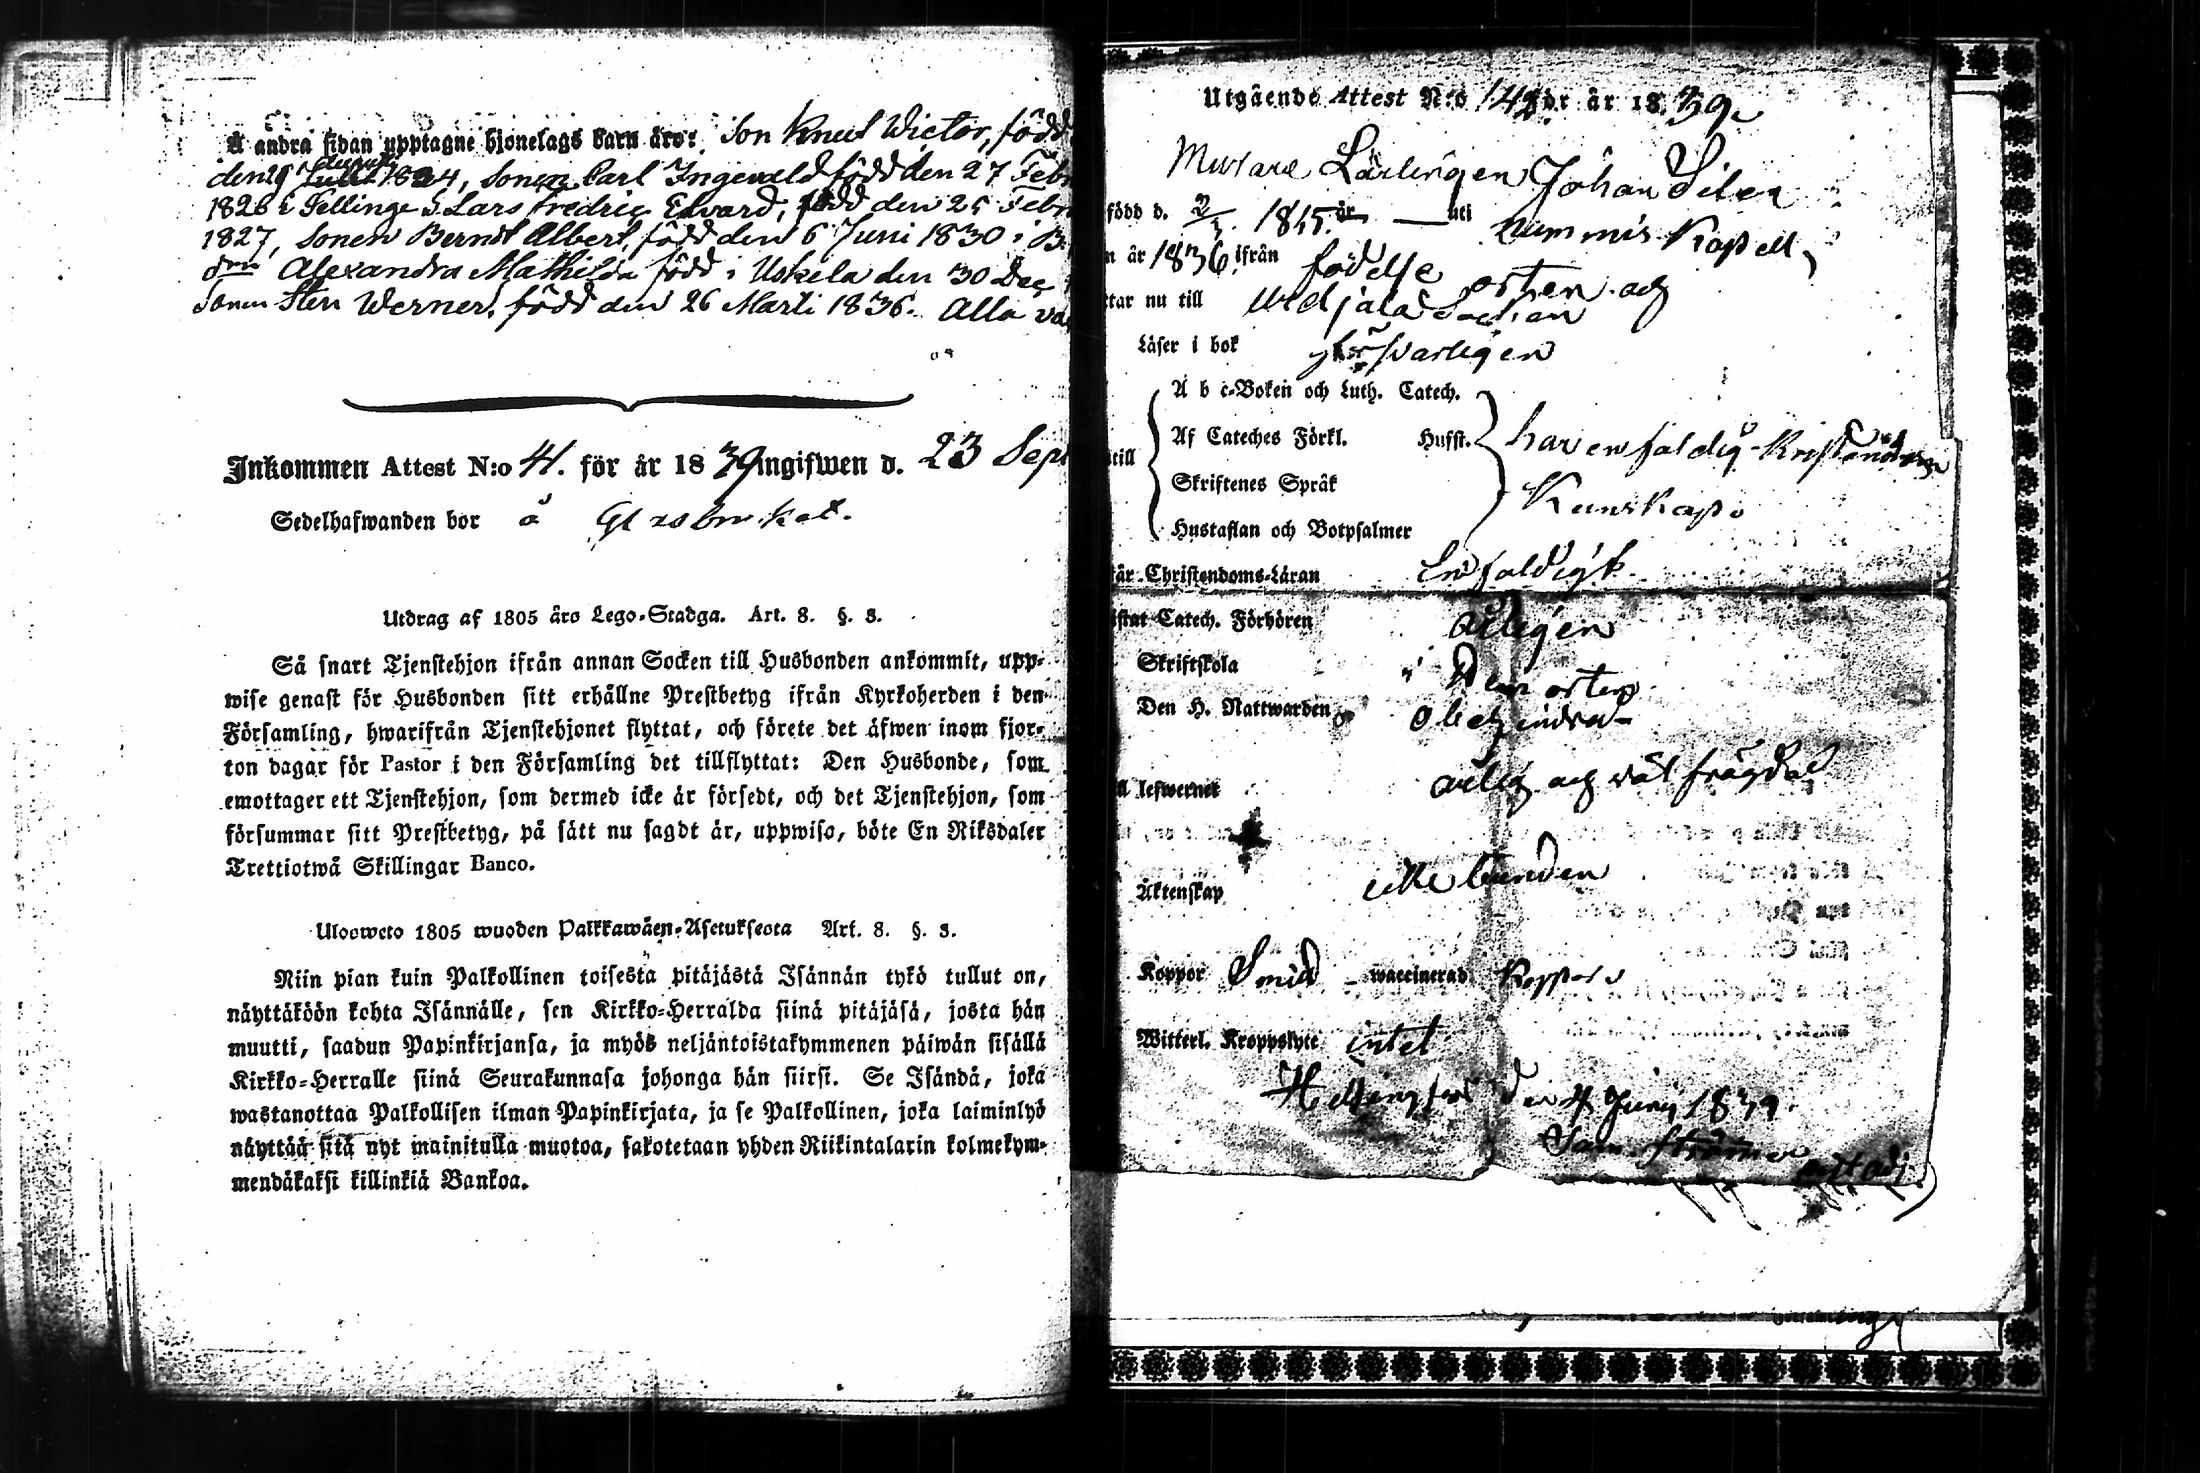 Å andra sidan upptagne hjonelags barn äro: Son Knut Wictor, född
den 29 Augusti 1824, Sonen Carl Ingevald född den 27 Febr
1826 i Tellinge S Lars Fredric Edvard, född den 25 Febr
1827, Sonen Berndt Albert, född den 6 Juni 1830 i
Alexandra Mathilda född i Uskela den 30 Dec
Sonen Sten Werner, född den 26 Marti 1836. Alla
Inkommen Attest N:o 4. för år 1839 ingifwen d. 23 Sept
Sedelhafwanden bor å Glasbruket.
Utdrag af 1805 års Lego-Stadga. Art. 8. §. 3.
Så snart Tjenstehjon ifrån annan Socken till Husbonden ankommit, upp-
wise genast för Husbonden sitt erhållne Prestbetyg ifrån Kyrkoherden i den
Församling, hwarifrån Tjenstehjonet flyttat, och förete det äfwen inom fjor-
ton dagar för Pastor i den Församling det tillflyttat: Den Husbonde, som
emottager ett Tjenstehjon, som dermed icke är försedt, och det Tjenstehjon, som
försummar sitt Prestbetyg, på sätt nu sagdt är, uppwisa, böte En Riksdaler
Trettiotwå Skillingar Banco.
Ulosweto 1805 wuoden Palkkawäen-Asetuksesta Art. 8. §. 3.
Niin pian kuin Palkollinen toisesta pitäjästä Isännän tykö tullut on,
näyttäköön kohta Isännälle, sen Kirkko-Herralda siinä pitäjäsä, josta hän
muutti, saadun Papinkirjansa, ja myös neljäntoistakymmenen päiwän sisällä
Kirkko-Herralle siinä Seurakunnasa johonga hän siirsi. Se Isändä, joka
wastanottaa Palkollisen ilman Papinkirjata, ja se Palkollinen, joka laiminlyö
näyttää sitä nyt mainitulla muotoa, sakotetaan yhden Riikintalarin kolmekym-
mendäkaksi killinkiä Bankoa.
Utgående Attest N:o 142 för år 1839.
Murare Lärlingen Johan Silen
född d. 2/ 1815 uti Nummis Kapell,
n år 1836 ifrån födelse orten och
ttar nu till Urdjala Sochen
Läser i bok försvarligen
A b c-Boken och Luth. Catech.
till Af Cateches Förkl. Husst. har enfaldig Kristendoms
Skriftenes Språk Kunskap.
Hustaflan och Botpsalmer
är Christendoms-Läran Enfaldigt
istat Catech. Förhören årligen
Skriftskola i dem orten
Den H. Nattwarden obehindrad
ll lefwernet ärlig och väl frägdad
Äktenskap icke bunden
Koppor Smid waccinerad Koppor
Witterl. Kroppslyte intet
Helsingfors den 4 Junij 1839.
Sam. Strömer